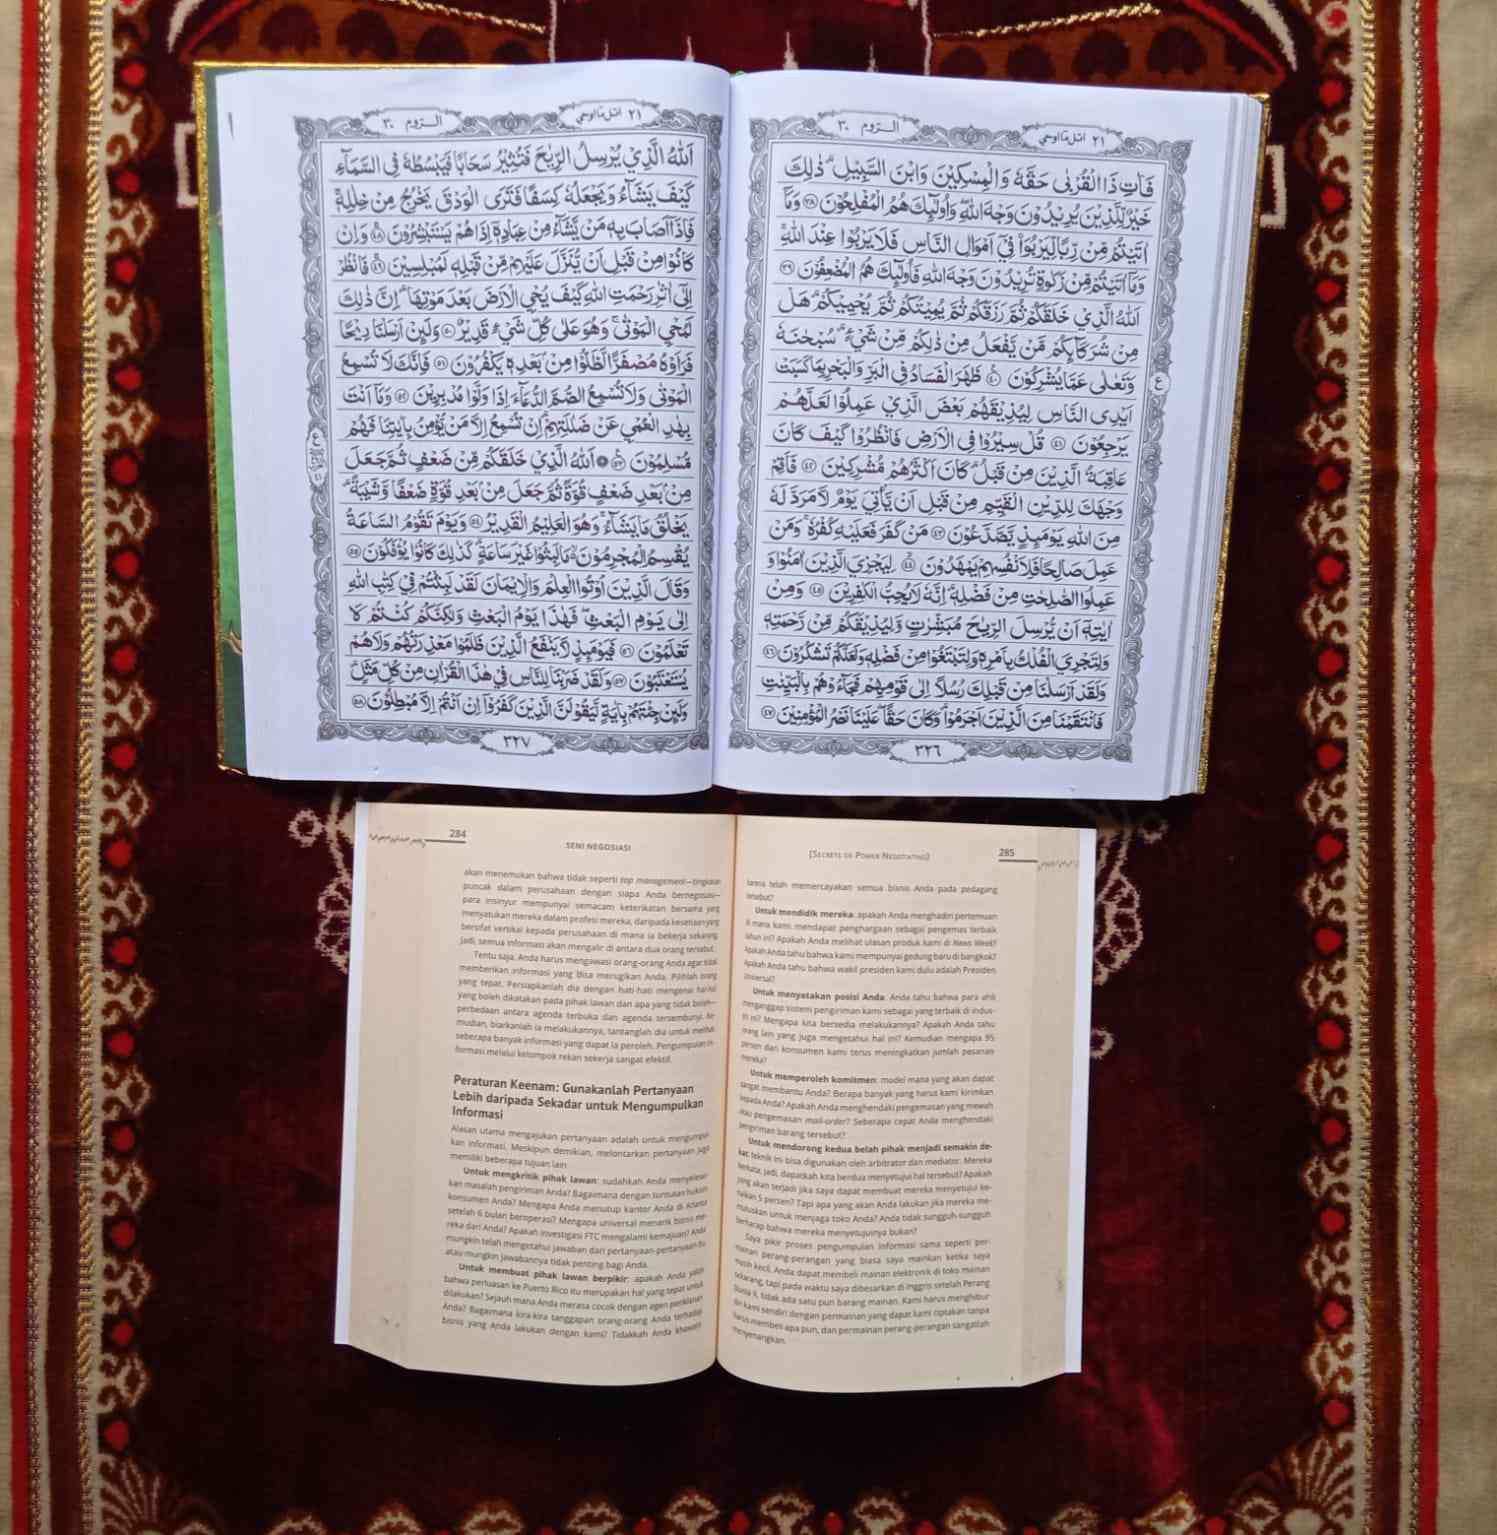 اتل ما اوحي ٢١
الـروم ٣٠
فَاٰتِ ذَا الْقُرْبٰى حَقَّهٗ وَالْمِسْكِيْنَ وَابْنَ السَّبِيْلِۗ ذٰلِكَ
خَيْرٌ لِّلَّذِيْنَ يُرِيْدُوْنَ وَجْهَ اللّٰهِ ۖوَاُولٰۤىِٕكَ هُمُ الْمُفْلِحُوْنَ ٣٨ وَمَآ
اٰتَيْتُمْ مِّنْ رِّبًا لِّيَرْبُوَا۟ فِيْٓ اَمْوَالِ النَّاسِ فَلَا يَرْبُوْا عِنْدَ اللّٰهِ
وَمَآ اٰتَيْتُمْ مِّنْ زَكٰوةٍ تُرِيْدُوْنَ وَجْهَ اللّٰهِ فَاُولٰۤىِٕكَ هُمُ الْمُضْعِفُوْنَ ٣٩
اَللّٰهُ الَّذِيْ خَلَقَكُمْ ثُمَّ رَزَقَكُمْ ثُمَّ يُمِيْتُكُمْ ثُمَّ يُحْيِيْكُمْۗ هَلْ
مِنْ شُرَكَاۤىِٕكُمْ مَّنْ يَّفْعَلُ مِنْ ذٰلِكُمْ مِّنْ شَيْءٍۗ سُبْحٰنَهٗ
وَتَعٰلٰى عَمَّا يُشْرِكُوْنَ ٤٠ ظَهَرَ الْفَسَادُ فِى الْبَرِّ وَالْبَحْرِ بِمَا كَسَبَتْ
اَيْدِى النَّاسِ لِيُذِيْقَهُمْ بَعْضَ الَّذِيْ عَمِلُوْا لَعَلَّهُمْ
يَرْجِعُوْنَ ٤١ قُلْ سِيْرُوْا فِى الْاَرْضِ فَانْظُرُوْا كَيْفَ كَانَ
عَاقِبَةُ الَّذِيْنَ مِنْ قَبْلُۗ كَانَ اَكْثَرُهُمْ مُّشْرِكِيْنَ ٤٢ فَاَقِمْ
وَجْهَكَ لِلدِّيْنِ الْقَيِّمِ مِنْ قَبْلِ اَنْ يَّأْتِيَ يَوْمٌ لَّا مَرَدَّ لَهٗ
مِنَ اللّٰهِ يَوْمَىِٕذٍ يَّصَّدَّعُوْنَ ٤٣ مَنْ كَفَرَ فَعَلَيْهِ كُفْرُهٗۚ وَمَنْ
عَمِلَ صَالِحًا فَلِاَنْفُسِهِمْ يَمْهَدُوْنَ ٤٤ لِيَجْزِيَ الَّذِيْنَ اٰمَنُوْا وَ
عَمِلُوا الصّٰلِحٰتِ مِنْ فَضْلِهٖۗ اِنَّهٗ لَا يُحِبُّ الْكٰفِرِيْنَ ٤٥ وَمِنْ
اٰيٰتِهٖٓ اَنْ يُّرْسِلَ الرِّيٰحَ مُبَشِّرٰتٍ وَّلِيُذِيْقَكُمْ مِّنْ رَّحْمَتِهٖ
وَلِتَجْرِيَ الْفُلْكُ بِاَمْرِهٖ وَلِتَبْتَغُوْا مِنْ فَضْلِهٖ وَلَعَلَّكُمْ تَشْكُرُوْنَ ٤٦
وَلَقَدْ اَرْسَلْنَا مِنْ قَبْلِكَ رُسُلًا اِلٰى قَوْمِهِمْ فَجَاۤءُوْهُمْ بِالْبَيِّنٰتِ
فَانْتَقَمْنَا مِنَ الَّذِيْنَ اَجْرَمُوْاۗ وَكَانَ حَقًّا عَلَيْنَا نَصْرُ الْمُؤْمِنِيْنَ ٤٧
ع
٣٢٦
اتل ما اوحي ٢١
الـروم ٣٠
اَللّٰهُ الَّذِيْ يُرْسِلُ الرِّيٰحَ فَتُثِيْرُ سَحَابًا فَيَبْسُطُهٗ فِى السَّمَاۤءِ
كَيْفَ يَشَاۤءُ وَيَجْعَلُهٗ كِسَفًا فَتَرَى الْوَدْقَ يَخْرُجُ مِنْ خِلٰلِهٖۚ
فَاِذَآ اَصَابَ بِهٖ مَنْ يَّشَاۤءُ مِنْ عِبَادِهٖٓ اِذَا هُمْ يَسْتَبْشِرُوْنَ ٤٨ وَاِنْ
كَانُوْا مِنْ قَبْلِ اَنْ يُّنَزَّلَ عَلَيْهِمْ مِّنْ قَبْلِهٖ لَمُبْلِسِيْنَ ٤٩ فَانْظُرْ
اِلٰٓى اٰثٰرِ رَحْمَتِ اللّٰهِ كَيْفَ يُحْيِ الْاَرْضَ بَعْدَ مَوْتِهَاۗ اِنَّ ذٰلِكَ
لَمُحْيِ الْمَوْتٰىۚ وَهُوَ عَلٰى كُلِّ شَيْءٍ قَدِيْرٌ ٥٠ وَلَىِٕنْ اَرْسَلْنَا رِيْحًا
فَرَاَوْهُ مُصْفَرًّا لَّظَلُّوْا مِنْۢ بَعْدِهٖ يَكْفُرُوْنَ ٥١ فَاِنَّكَ لَا تُسْمِعُ
الْمَوْتٰى وَلَا تُسْمِعُ الصُّمَّ الدُّعَاۤءَ اِذَا وَلَّوْا مُدْبِرِيْنَ ٥٢ وَمَآ اَنْتَ
بِهٰدِ الْعُمْيِ عَنْ ضَلٰلَتِهِمْۗ اِنْ تُسْمِعُ اِلَّا مَنْ يُّؤْمِنُ بِاٰيٰتِنَا فَهُمْ
مُّسْلِمُوْنَ ٥٣ ۞ اَللّٰهُ الَّذِيْ خَلَقَكُمْ مِّنْ ضَعْفٍ ثُمَّ جَعَلَ
مِنْۢ بَعْدِ ضَعْفٍ قُوَّةً ثُمَّ جَعَلَ مِنْۢ بَعْدِ قُوَّةٍ ضَعْفًا وَّشَيْبَةًۗ
يَخْلُقُ مَا يَشَاۤءُۚ وَهُوَ الْعَلِيْمُ الْقَدِيْرُ ٥٤ وَيَوْمَ تَقُوْمُ السَّاعَةُ
يُقْسِمُ الْمُجْرِمُوْنَ ەۙ مَا لَبِثُوْا غَيْرَ سَاعَةٍۗ كَذٰلِكَ كَانُوْا يُؤْفَكُوْنَ ٥٥
وَقَالَ الَّذِيْنَ اُوْتُوا الْعِلْمَ وَالْاِيْمَانَ لَقَدْ لَبِثْتُمْ فِيْ كِتٰبِ اللّٰهِ
اِلٰى يَوْمِ الْبَعْثِۖ فَهٰذَا يَوْمُ الْبَعْثِ وَلٰكِنَّكُمْ كُنْتُمْ لَا
تَعْلَمُوْنَ ٥٦ فَيَوْمَىِٕذٍ لَّا يَنْفَعُ الَّذِيْنَ ظَلَمُوْا مَعْذِرَتُهُمْ وَلَا هُمْ
يُسْتَعْتَبُوْنَ ٥٧ وَلَقَدْ ضَرَبْنَا لِلنَّاسِ فِيْ هٰذَا الْقُرْاٰنِ مِنْ كُلِّ مَثَلٍۗ
وَلَىِٕنْ جِئْتَهُمْ بِاٰيَةٍ لَّيَقُوْلَنَّ الَّذِيْنَ كَفَرُوْٓا اِنْ اَنْتُمْ اِلَّا مُبْطِلُوْنَ ٥٨
٣٢٧
284
SENI NEGOSIASI
akan menemukan bahwa tidak seperti top management—tingkatan
puncak dalam perusahaan dengan siapa Anda bernegosiasi—
para insinyur mempunyai semacam keterikatan bersama yang
menyatukan mereka dalam profesi mereka, daripada kesetiaan yang
bersifat vertikal kepada perusahaan di mana ia bekerja sekarang.
Jadi, semua informasi akan mengalir di antara dua orang tersebut.
Tentu saja, Anda harus mengawasi orang-orang Anda agar tidak
memberikan informasi yang bisa merugikan Anda. Pilihlah orang
yang tepat. Persiapkanlah dia dengan hati-hati mengenai hal-hal
yang boleh dikatakan pada pihak lawan dan apa yang tidak boleh—
perbedaan antara agenda terbuka dan agenda tersembunyi. Ke-
mudian, biarkanlah ia melakukannya, tantanglah dia untuk melihat
seberapa banyak informasi yang dapat ia peroleh. Pengumpulan in-
formasi melalui kelompok rekan sekerja sangat efektif.
Peraturan Keenam: Gunakanlah Pertanyaan
Lebih daripada Sekadar untuk Mengumpulkan
Informasi
Alasan utama mengajukan pertanyaan adalah untuk mengumpul-
kan informasi. Meskipun demikian, melontarkan pertanyaan juga
memiliki beberapa tujuan lain:
Untuk mengkritik pihak lawan: sudahkah Anda menyelesai-
kan masalah pengiriman Anda? Bagaimana dengan tuntutan hukum
konsumen Anda? Mengapa Anda menutup kantor Anda di Atlanta
setelah 6 bulan beroperasi? Mengapa universal menarik bisnis me-
reka dari Anda? Apakah investigasi FTC mengalami kemajuan? Anda
mungkin telah mengetahui jawaban dari pertanyaan-pertanyaan itu
atau mungkin jawabannya tidak penting bagi Anda.
Untuk membuat pihak lawan berpikir: apakah Anda yakin
bahwa perluasan ke Puerto Rico itu merupakan hal yang tepat untuk
dilakukan? Sejauh mana Anda merasa cocok dengan agen periklanan
Anda? Bagaimana kira-kira tanggapan orang-orang Anda terhadap
bisnis yang Anda lakukan dengan kami? Tidakkah Anda khawatir
[SECRETS OF POWER NEGOTIATING]
285
karena telah memercayakan semua bisnis Anda pada pedagang
tersebut?
Untuk mendidik mereka: apakah Anda menghadiri pertemuan
di mana kami mendapat penghargaan sebagai pengemas terbaik
tahun ini? Apakah Anda melihat ulasan produk kami di News Week?
Apakah Anda tahu bahwa kami mempunyai gedung baru di bangkok?
Apakah Anda tahu bahwa wakil presiden kami dulu adalah Presiden
Universal?
Untuk menyatakan posisi Anda: Anda tahu bahwa para ahli
menganggap sistem pengiriman kami sebagai yang terbaik di indus-
tri ini? Mengapa kita bersedia melakukannya? Apakah Anda tahu
orang lain yang juga mengetahui hal ini? Kemudian mengapa 95
persen dari konsumen kami terus meningkatkan jumlah pesanan
mereka?
Untuk memperoleh komitmen: model mana yang akan dapat
sangat membantu Anda? Berapa banyak yang harus kami kirimkan
kepada Anda? Apakah Anda menghendaki pengemasan yang mewah
atau pengemasan mail-order? Seberapa cepat Anda menghendaki
pengiriman barang tersebut?
Untuk mendorong kedua belah pihak menjadi semakin de-
kat: teknik ini bisa digunakan oleh arbitrator dan mediator. Mereka
berkata, jadi, dapatkah kita berdua menyetujui hal tersebut? Apakah
yang akan terjadi jika saya dapat membuat mereka menyetujui ke-
naikan 5 persen? Tapi apa yang akan Anda lakukan jika mereka me-
mutuskan untuk menjaga toko Anda? Anda tidak sungguh-sungguh
berharap bahwa mereka menyetujuinya bukan?
Saya pikir proses pengumpulan informasi sama seperti per-
mainan perang-perangan yang biasa saya mainkan ketika saya
masih kecil. Anda dapat membeli mainan elektronik di toko mainan
sekarang, tapi pada waktu saya dibesarkan di Inggris setelah Perang
Dunia II, tidak ada satu pun barang mainan. Kami harus menghibur
diri kami sendiri dengan permainan yang dapat kami ciptakan tanpa
harus membeli apa pun, dan permainan perang-perangan sangatlah
menyenangkan.